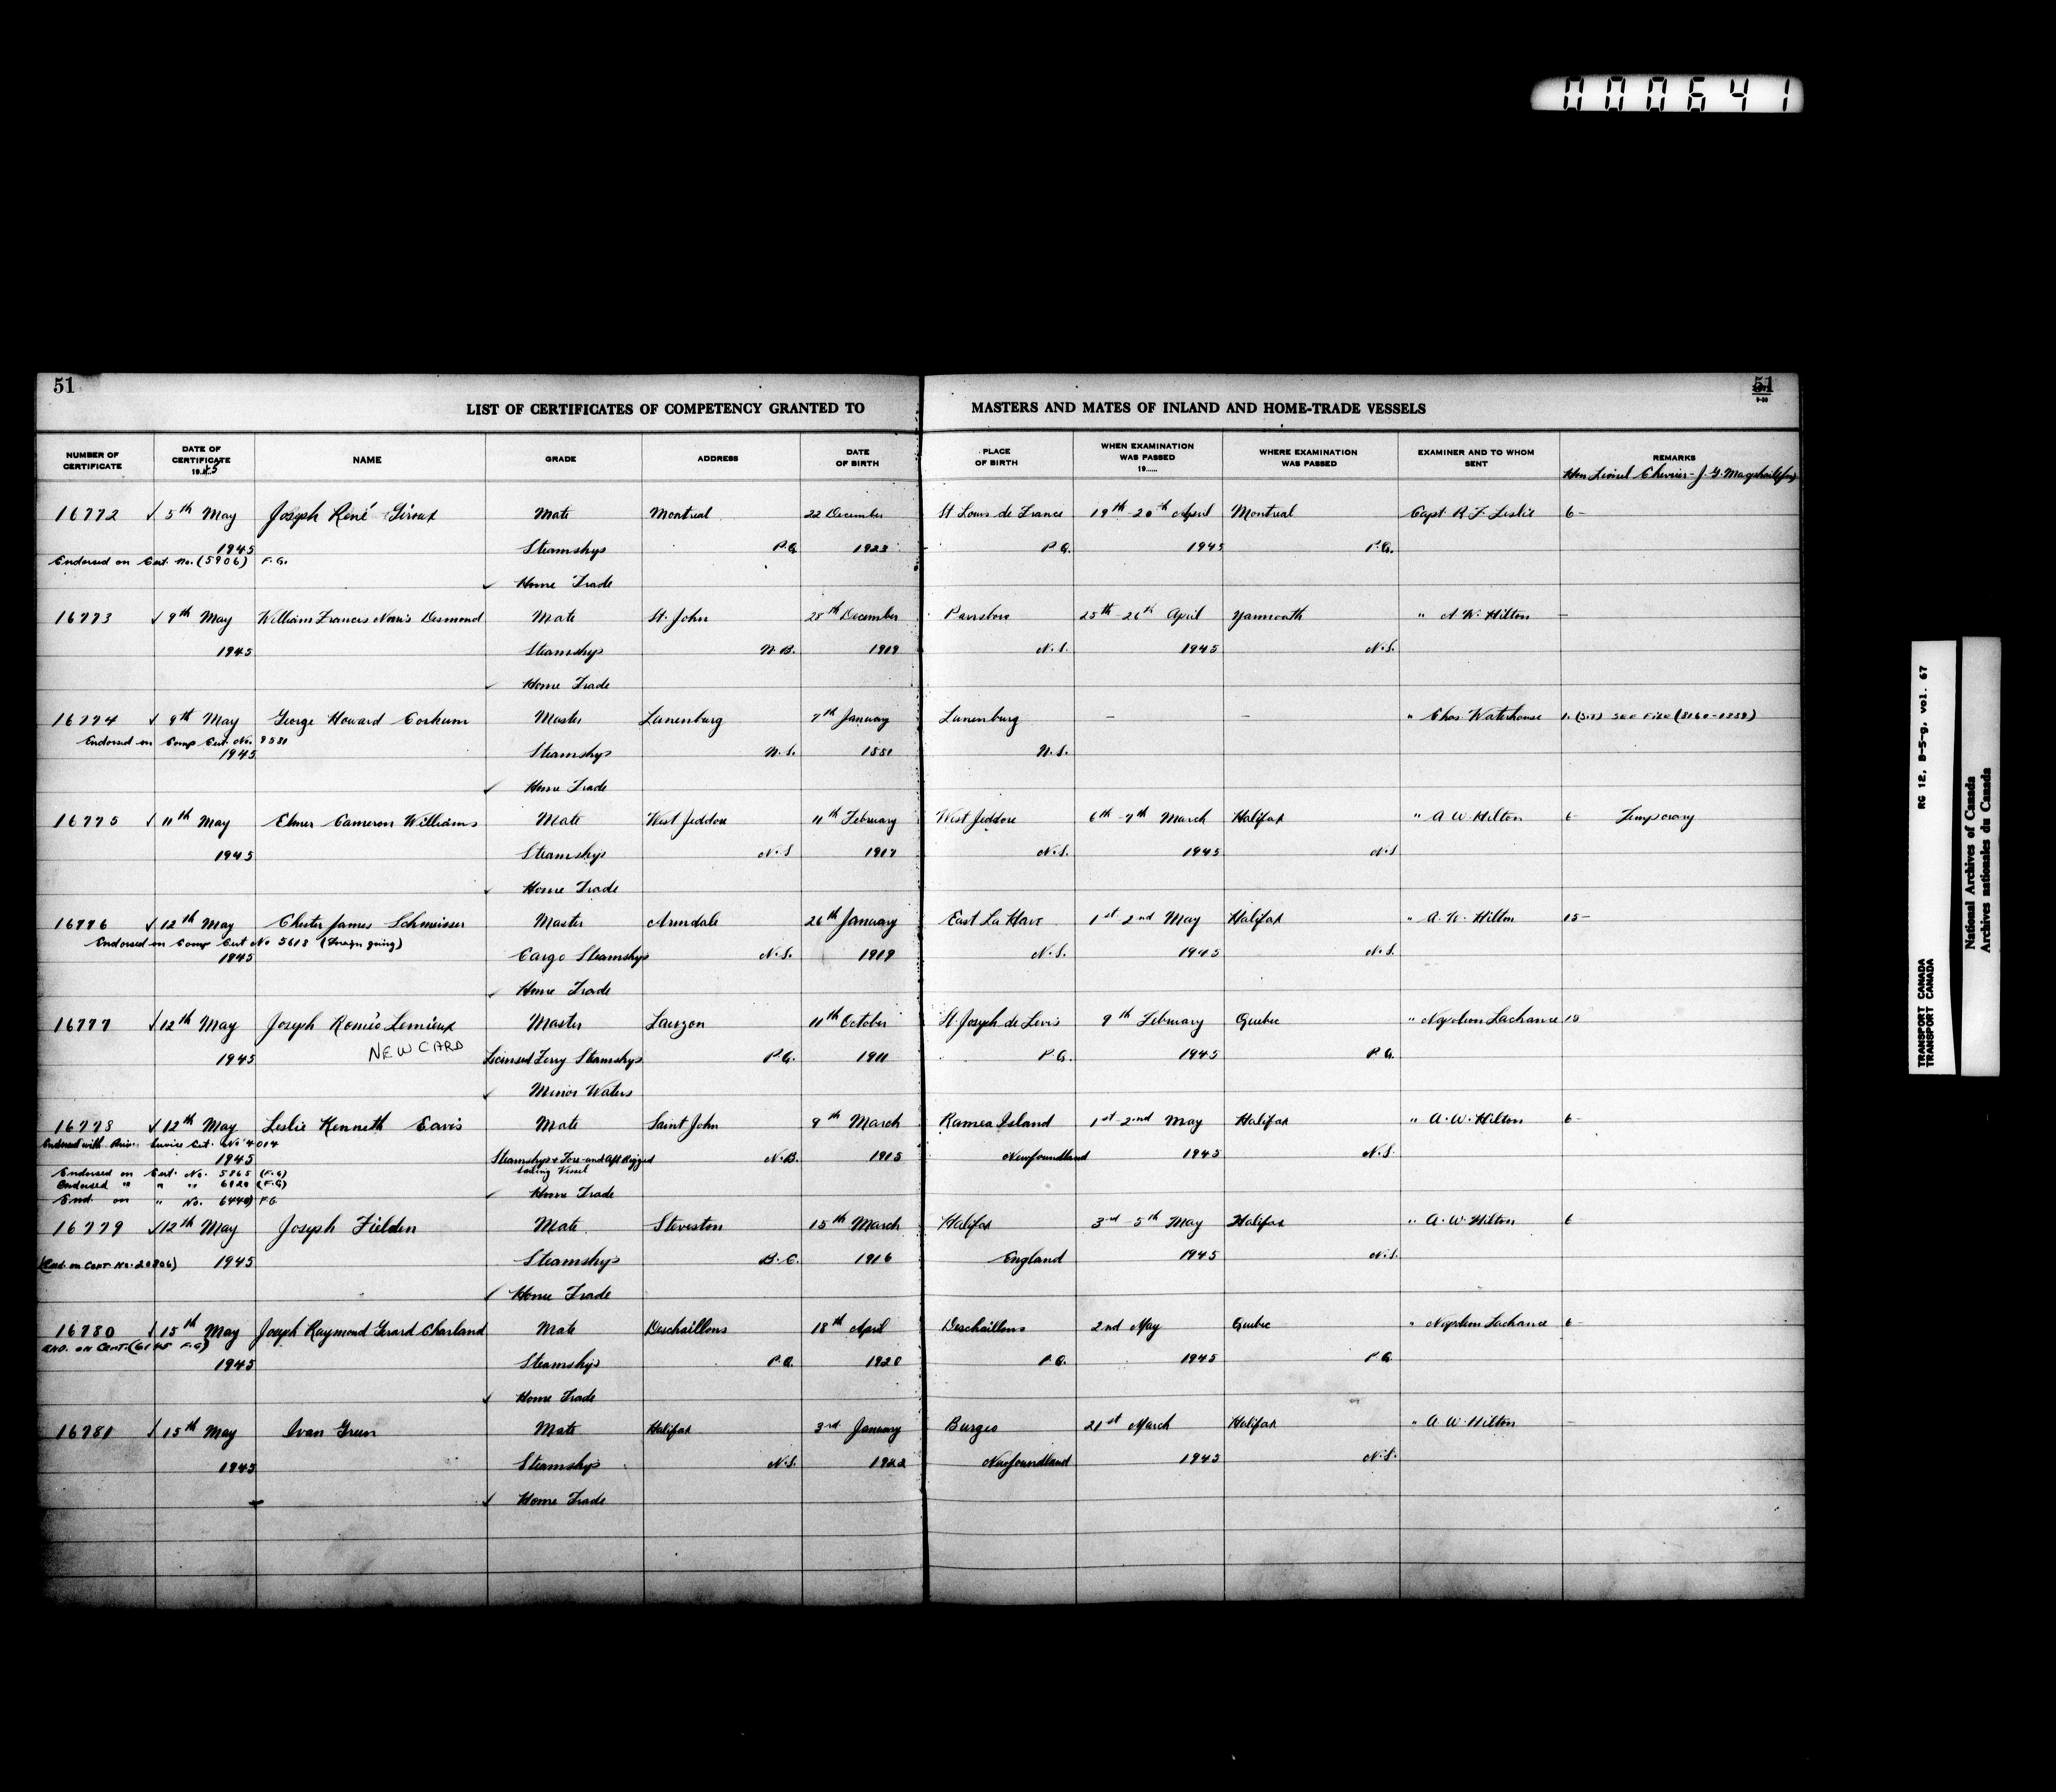 000641
51
51
LIST OF CERTIFICATES OF COMPETENCY GRANTED TO MASTERS AND MATES OF INLAND AND HOME-TRADE VESSELS
NUMBER OF CERTIFICATE DATE OF CERTIFICATE 1945 NAME GRADE ADDRESS DATE OF BIRTH PLACE OF BIRTH WHEN EXAMINATION WAS PASSED 19...... WHERE EXAMINATION WAS PASSED EXAMINER AND TO WHOM SENT REMARKS
Hon Lionel Chevrier - J. G.
16772 √ 5th May Joseph René Giroux Mate Montreal 22 December St Louis de France 19th - 20th April Montreal Capt. R. F. Leslie 6 -
1945 Steamships P.Q. 1923 P.Q. 1945 P.Q.
Endorsed on Cert. No. (5906) F.G.
✓ Home Trade
16773 √ 9th May William Francis Norris Desmond Mate St. John 25th December Parrsboro 25th - 26th April Yarmouth " A. W. Hilton —
1945 Steamships N.B. 1919 N.S. 1945 N.S.
✓ Home Trade
16774 √ 9th May George Howard Corkum Master Lunenburg 7th January Lunenburg — — " Chas. Waterhouse 1. (S.S) SEE FILE (3160-1338)
Endorsed on Comp Cert. No. 9581
1945 Steamships N.S. 1881 N.S.
✓ Home Trade
16775 √ 11th May Elmer Cameron Williams Mate West Jeddore 11th February West Jeddore 6th - 7th March Halifax " A. W. Hilton 6 - Temporary
1945 Steamships N.S. 1917 N.S. 1945 N.S.
✓ Home Trade
16776 √ 12th May Chester James Schmeisser Master Armdale 26th January East La Have 1st - 2nd May Halifax " A. W. Hilton 15 -
Endorsed on Comp Cert No 5618 (Foreign going)
1945 Cargo Steamships N.S. 1919 N.S. 1945 N.S.
✓ Home Trade
16777 √ 12th May Joseph Roméo Lemieux Master Lauzon 11th October St Joseph de Levis 9th February Quebec " Napoleon Lachance 15
NEW CARD
1945 Licensed Ferry Steamships P.Q. 1911 P.Q. 1945 P.Q.
✓ Minor Waters
16778 √ 12th May Leslie Kenneth Eavis Mate Saint John 9th March Ramea Island 1st - 2nd May Halifax " A. W. Hilton 6 -
Endorsed with Priv. Service Cert. No 4014
1945 Steamships + Fore-and-Aft Rigged Sailing Vessel N.B. 1915 Newfoundland 1945 N.S.
Endorsed on Cert. No. 5865 (F.G)
Endorsed " " " 6120 (F.G)
✓ Home Trade
End. on " No. 6440) F.G
16779 √ 12th May Joseph Fielden Mate Steveston 15th March Halifax 3rd - 5th May Halifax " A. W. Hilton 6
(End. on Cert. No. 20806) 1945 Steamships B.C. 1916 England 1945 N.S.
✓ Home Trade
16780 √ 15th May Joseph Raymond Gerard Charland Mate Deschaillons 18th April Deschaillons 2nd May Quebec " Napoleon Lachance 6 -
END. ON CERT. (6145 F.G)
1945 Steamships P.Q. 1920 P.Q. 1945 P.Q.
✓ Home Trade
16781 √ 15th May Ivan Green Mate Halifax 3rd January Burgeo 21st March Halifax " A. W. Hilton —
1945 Steamships N.S. 1922 Newfoundland 1945 N.S.
✓ Home Trade
RG 12, B-5-g, vol. 67
TRANSPORT CANADA
TRANSPORT CANADA
National Archives of Canada
Archives nationales du Canada